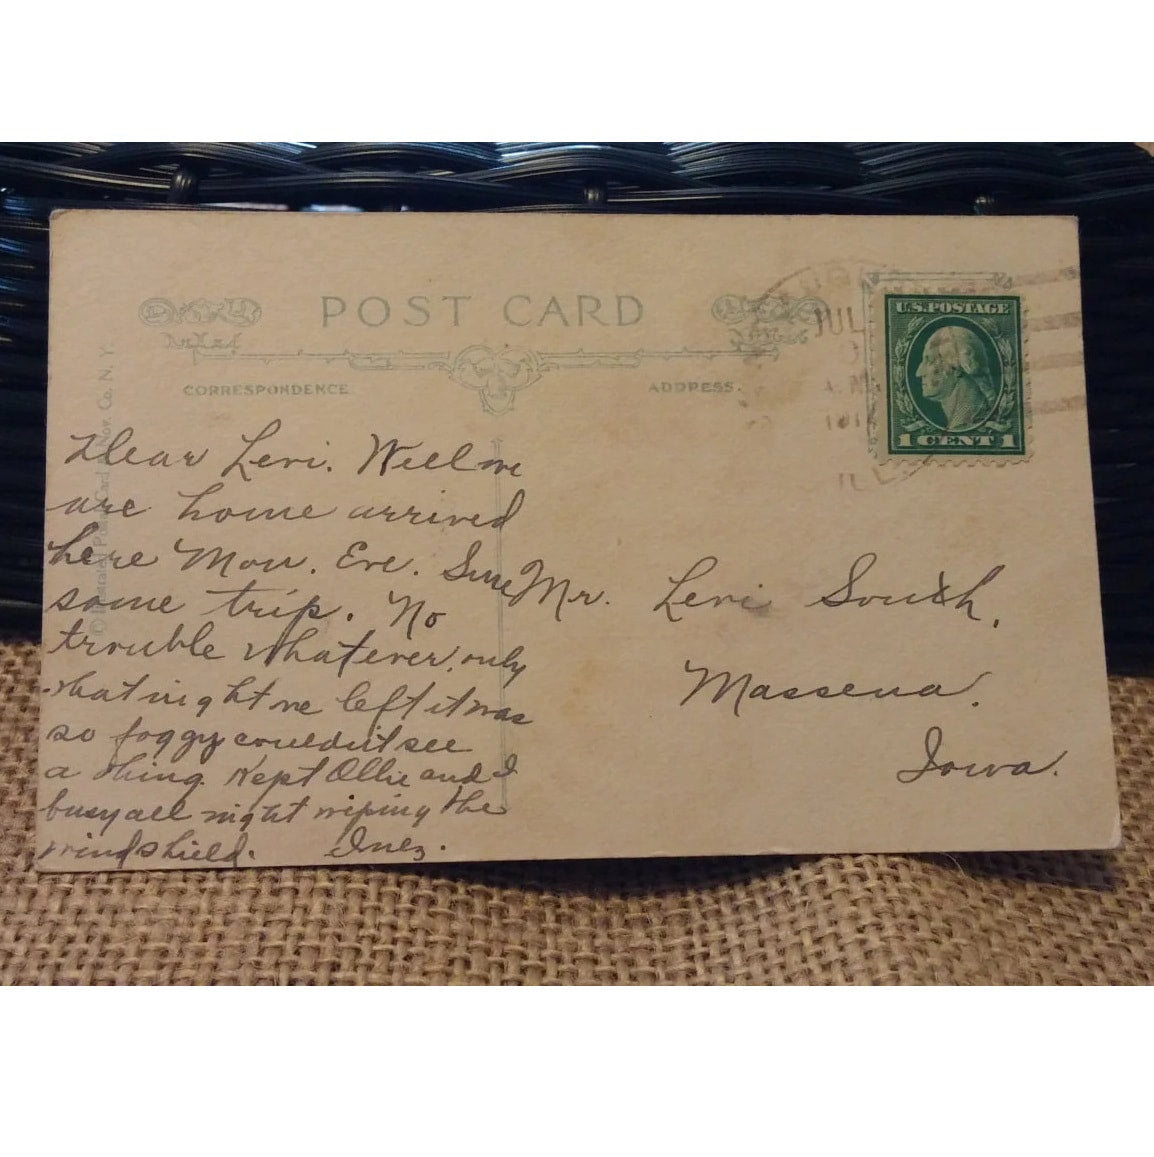 POST CARD
CORRESPONDENCE
ADDRESS.
U.S. POSTAGE
1 CENT 1
JUL
A.M.
191
ILL
Post Card & Nov. Co. N. Y.
Dear Levi. Well we
are home arrived
here Mon. Eve. Sure
some trip. No
trouble whatever, only
that night we left it was
so foggy couldn't see
a thing. Kept Ollie and I
busy all night wiping the
windshield. Inez.
Mr. Levi South,
Massena,
Iowa.